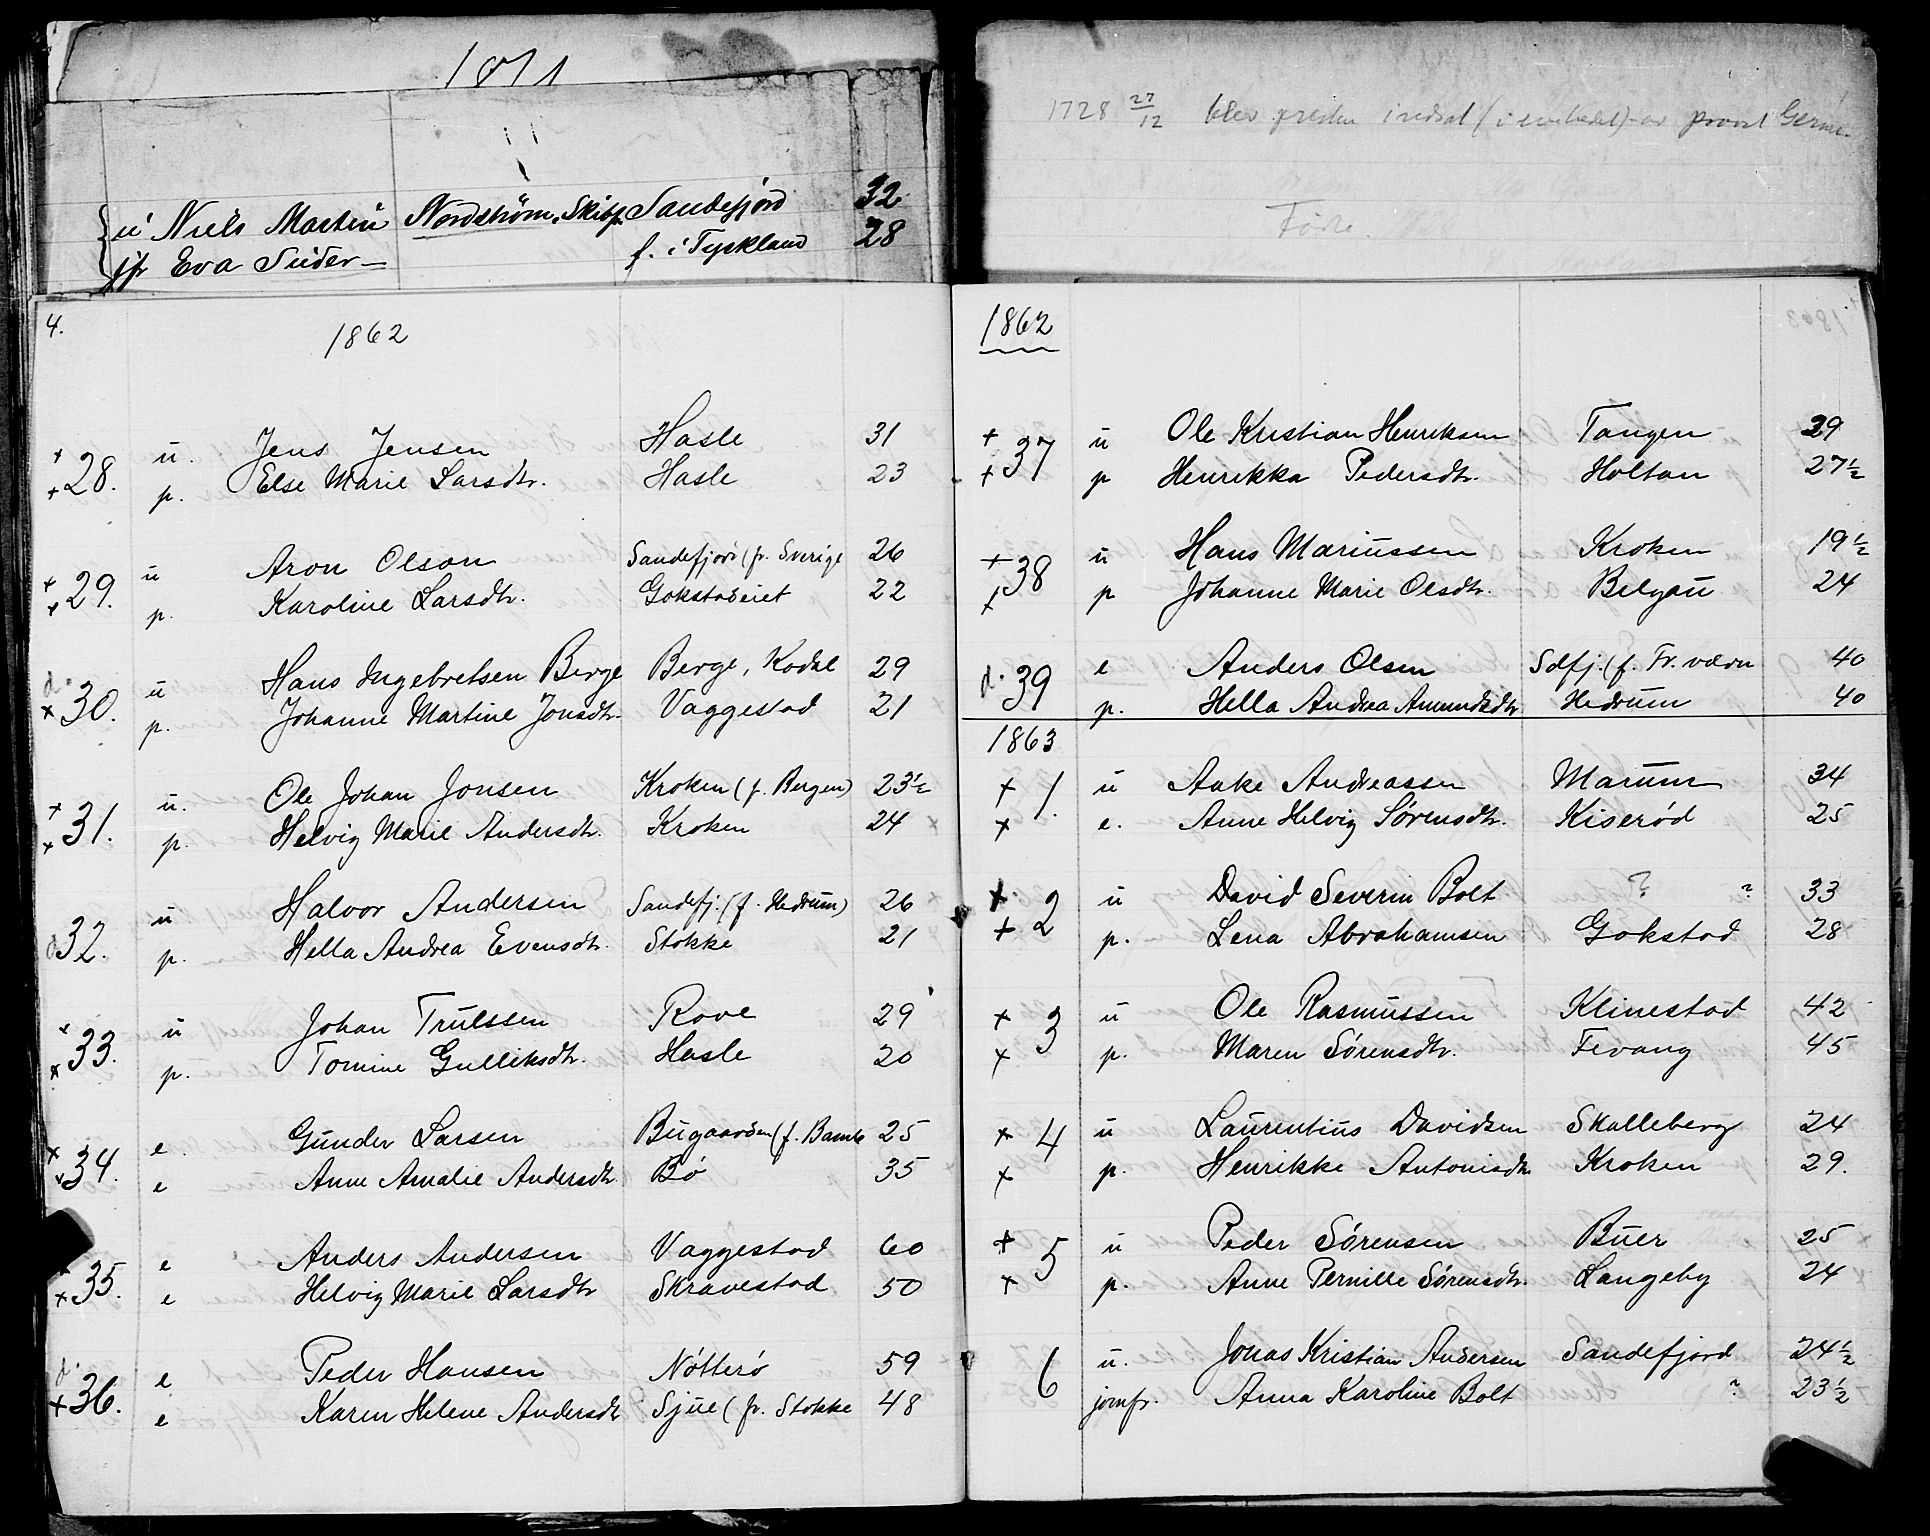 1871
{u Niels Martin Nordstrøm, Skibsf. Sandefjord 32
jfr Eva Suder— f. i Tyskland 28
4.
1862
+ 28. u. Jens Jensen Hasle 31
+ p. Else Marie Larsdtr. Hasle 23
+ 29. u Aron Olson Sandefjord (fr. Sverige 26
+ p. Karoline Larsdtr. Gokstadeiet 22
d. 30. u Hans Ingebretsen Berge Berge, Kodal 29
+ p. Johanne Martine Jonsdtr. Vaggestad 21
+ 31. u. Ole Johan Jonsen Kroken (f. Bergen) 23½
+ p. Helvig Marie Andersdtr. Kroken 24
d 32. u Halvor Andersen Sandefj. (f. Hedrum) 26
p. Hella Andrea Evensdtr. Stokke 21
+ 33. u Johan Trulssen Rove 29
+ p. Tomine Gulliksdtr. Hasle 20
+ 34. e Gunder Larsen Bugaarden (f. Bamle 25
+ e Anne Amalie Andersdtr. Bø 35
+ 35. e Anders Andersen Vaggestad 60
+ e Helvig Marie Larsdtr Skravestad 50
d 36. e Peder Hansen Nøtterø 59
+ e Karen Helene Andersdtr Sjue (fr. Stokke 48
1728 27/12 blev presten indsat (i embedet) av provst
Føste.
1862
+ 37 u Ole Kristian Henriksen Tangen 29
+ p Henrikka Pedersdtr. Holtan 27½
+ 38 u Hans Mariussen Kroken 19½
+ p Johanne Marie Olsdtr. Belgau 24
d. 39 e Anders Olsen Sdfj. (f. Fr. værn 40
p. Hella Andrea Amundsdtr Hedrum 40
1863
+ 1. u Aake Andreassen Marum 34
+ e. Anne Helvig Sørensdtr. Kiserød 25
+ 2 u David Severin Bolt ? ? 33
+ p. Lena Abrahamsen Gokstad 28
+ 3 u Ole Rasmussen Klinestad 42
+ p. Maren Sørensdtr. Fevang 45
+ 4 u Laurentius Davidsen Skalleberg 24
+ p. Henrikke Antonisdtr Kroken 29.
+ 5 u Peder Sørensen Buer 25
+ p. Anne Pernille Sørensdtr. Langeby 24
6 u. Jonas Kristian Andersen Sandefjord 24½
jomfr. Anna Karoline Bolt ? 23½